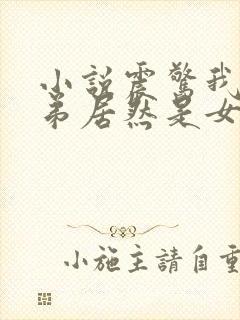 小説震驚我
弟居然是女
小施主請自重